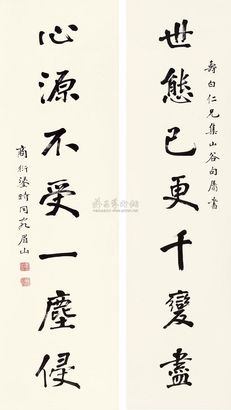 壽白仁兄集山谷句屬書
世態已更千變盡
心源不受一塵侵
商衍鎏時同客眉山